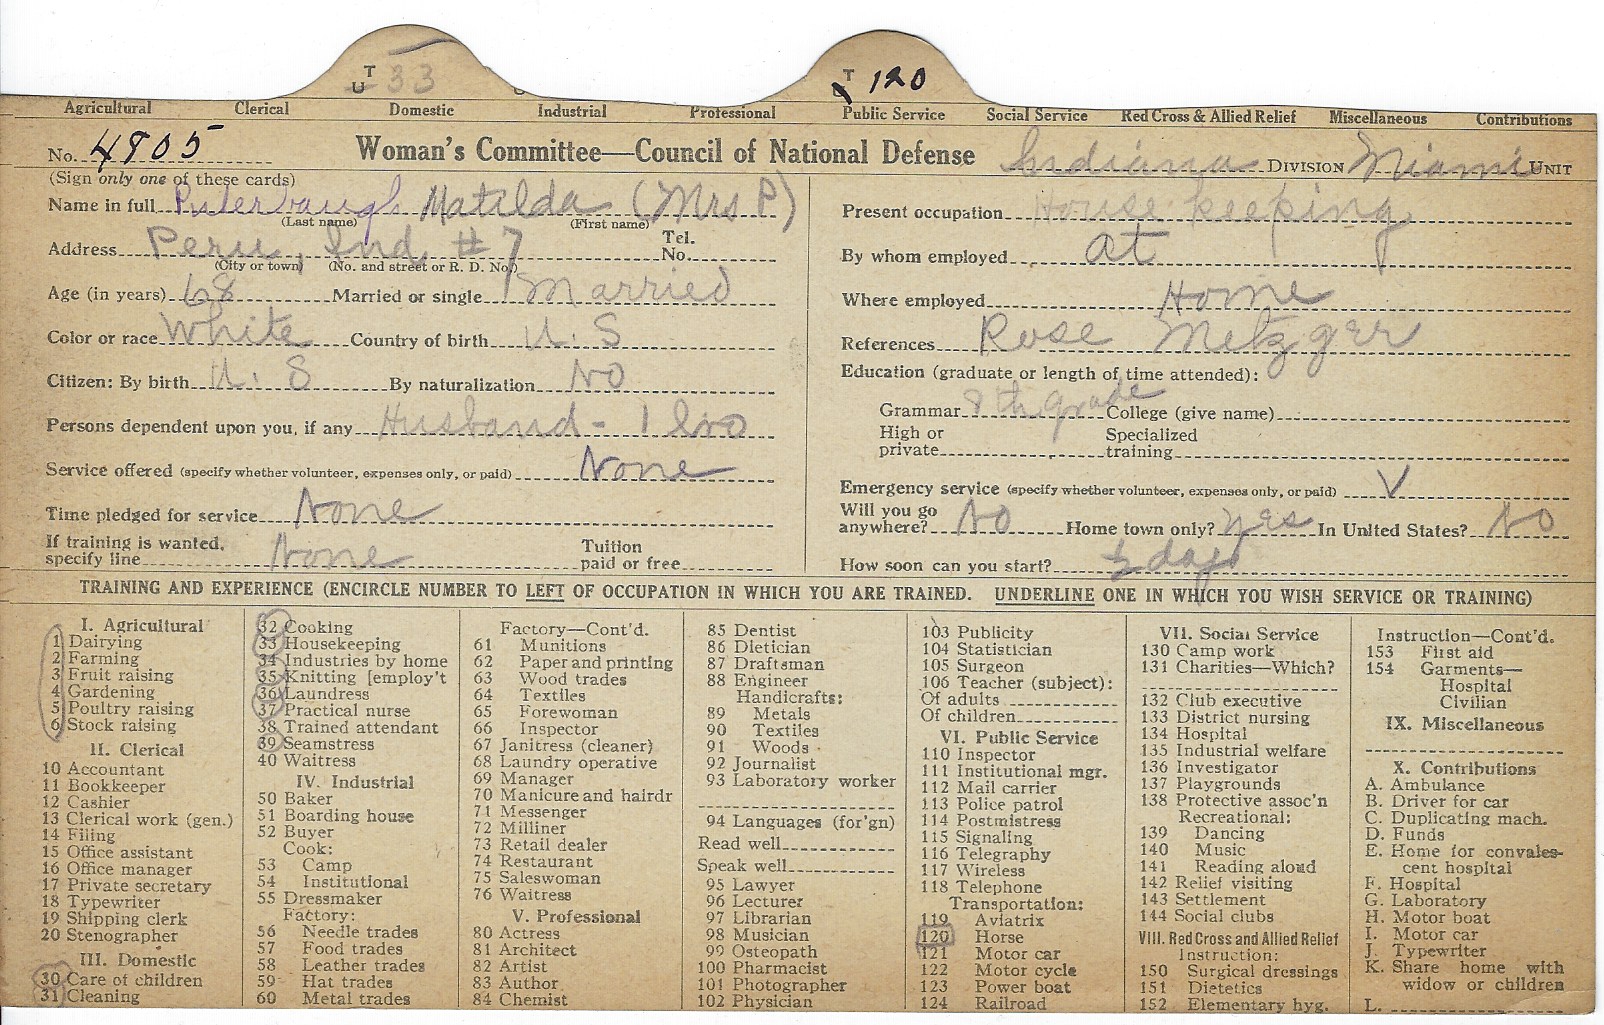 T
U 33
T
U 120
Agricultural Clerical Domestic Industrial Professional Public Service Social Service Red Cross & Allied Relief Miscellaneous Contributions
No. 4805 Woman's Committee—Council of National Defense Indiana DIVISION Miami UNIT
(Sign only one of these cards)
Name in full Puterbaugh Matilda (Mrs P)
(Last name) (First name)
Address Peru, Ind. #7 Tel. No.
(City or town) (No. and street or R. D. No.)
Age (in years) 68 Married or single Married
Color or race White Country of birth U. S
Citizen: By birth U. S By naturalization No
Persons dependent upon you, if any Husband - 1
Service offered (specify whether volunteer, expenses only, or paid) None
Time pledged for service None
If training is wanted, specify line None Tuition paid or free
Present occupation House keeping
By whom employed at
Where employed Home
References Rose Metzger
Education (graduate or length of time attended):
Grammar 8th grade College (give name)
High or private Specialized training
Emergency service (specify whether volunteer, expenses only, or paid) V
Will you go anywhere? No Home town only? Yes In United States? No
How soon can you start? ½ day
TRAINING AND EXPERIENCE (ENCIRCLE NUMBER TO LEFT OF OCCUPATION IN WHICH YOU ARE TRAINED. UNDERLINE ONE IN WHICH YOU WISH SERVICE OR TRAINING)
I. Agricultural
1 Dairying
2 Farming
3 Fruit raising
4 Gardening
5 Poultry raising
6 Stock raising
II. Clerical
10 Accountant
11 Bookkeeper
12 Cashier
13 Clerical work (gen.)
14 Filing
15 Office assistant
16 Office manager
17 Private secretary
18 Typewriter
19 Shipping clerk
20 Stenographer
III. Domestic
30 Care of children
31 Cleaning
32 Cooking
33 Housekeeping
34 Industries by home
35 Knitting [employ't
36 Laundress
37 Practical nurse
38 Trained attendant
39 Seamstress
40 Waitress
IV. Industrial
50 Baker
51 Boarding house
52 Buyer
Cook:
53 Camp
54 Institutional
55 Dressmaker
Factory:
56 Needle trades
57 Food trades
58 Leather trades
59 Hat trades
60 Metal trades
Factory—Cont'd.
61 Munitions
62 Paper and printing
63 Wood trades
64 Textiles
65 Forewoman
66 Inspector
67 Janitress (cleaner)
68 Laundry operative
69 Manager
70 Manicure and hairdr
71 Messenger
72 Milliner
73 Retail dealer
74 Restaurant
75 Saleswoman
76 Waitress
V. Professional
80 Actress
81 Architect
82 Artist
83 Author
84 Chemist
85 Dentist
86 Dietician
87 Draftsman
88 Engineer
Handicrafts:
89 Metals
90 Textiles
91 Woods
92 Journalist
93 Laboratory worker
94 Languages (for'gn)
Read well
Speak well
95 Lawyer
96 Lecturer
97 Librarian
98 Musician
99 Osteopath
100 Pharmacist
101 Photographer
102 Physician
103 Publicity
104 Statistician
105 Surgeon
106 Teacher (subject):
Of adults
Of children
VI. Public Service
110 Inspector
111 Institutional mgr.
112 Mail carrier
113 Police patrol
114 Postmistress
115 Signaling
116 Telegraphy
117 Wireless
118 Telephone
Transportation:
119 Aviatrix
120 Horse
121 Motor car
122 Motor cycle
123 Power boat
124 Railroad
VII. Social Service
130 Camp work
131 Charities—Which?
132 Club executive
133 District nursing
134 Hospital
135 Industrial welfare
136 Investigator
137 Playgrounds
138 Protective assoc'n
Recreational:
139 Dancing
140 Music
141 Reading aloud
142 Relief visiting
143 Settlement
144 Social clubs
VIII. Red Cross and Allied Relief
Instruction:
150 Surgical dressings
151 Dietetics
152 Elementary hyg.
Instruction—Cont'd.
153 First aid
154 Garments—
Hospital
Civilian
IX. Miscellaneous
X. Contributions
A. Ambulance
B. Driver for car
C. Duplicating mach.
D. Funds
E. Home for convales-
cent hospital
F. Hospital
G. Laboratory
H. Motor boat
I. Motor car
J. Typewriter
K. Share home with
widow or children
L.